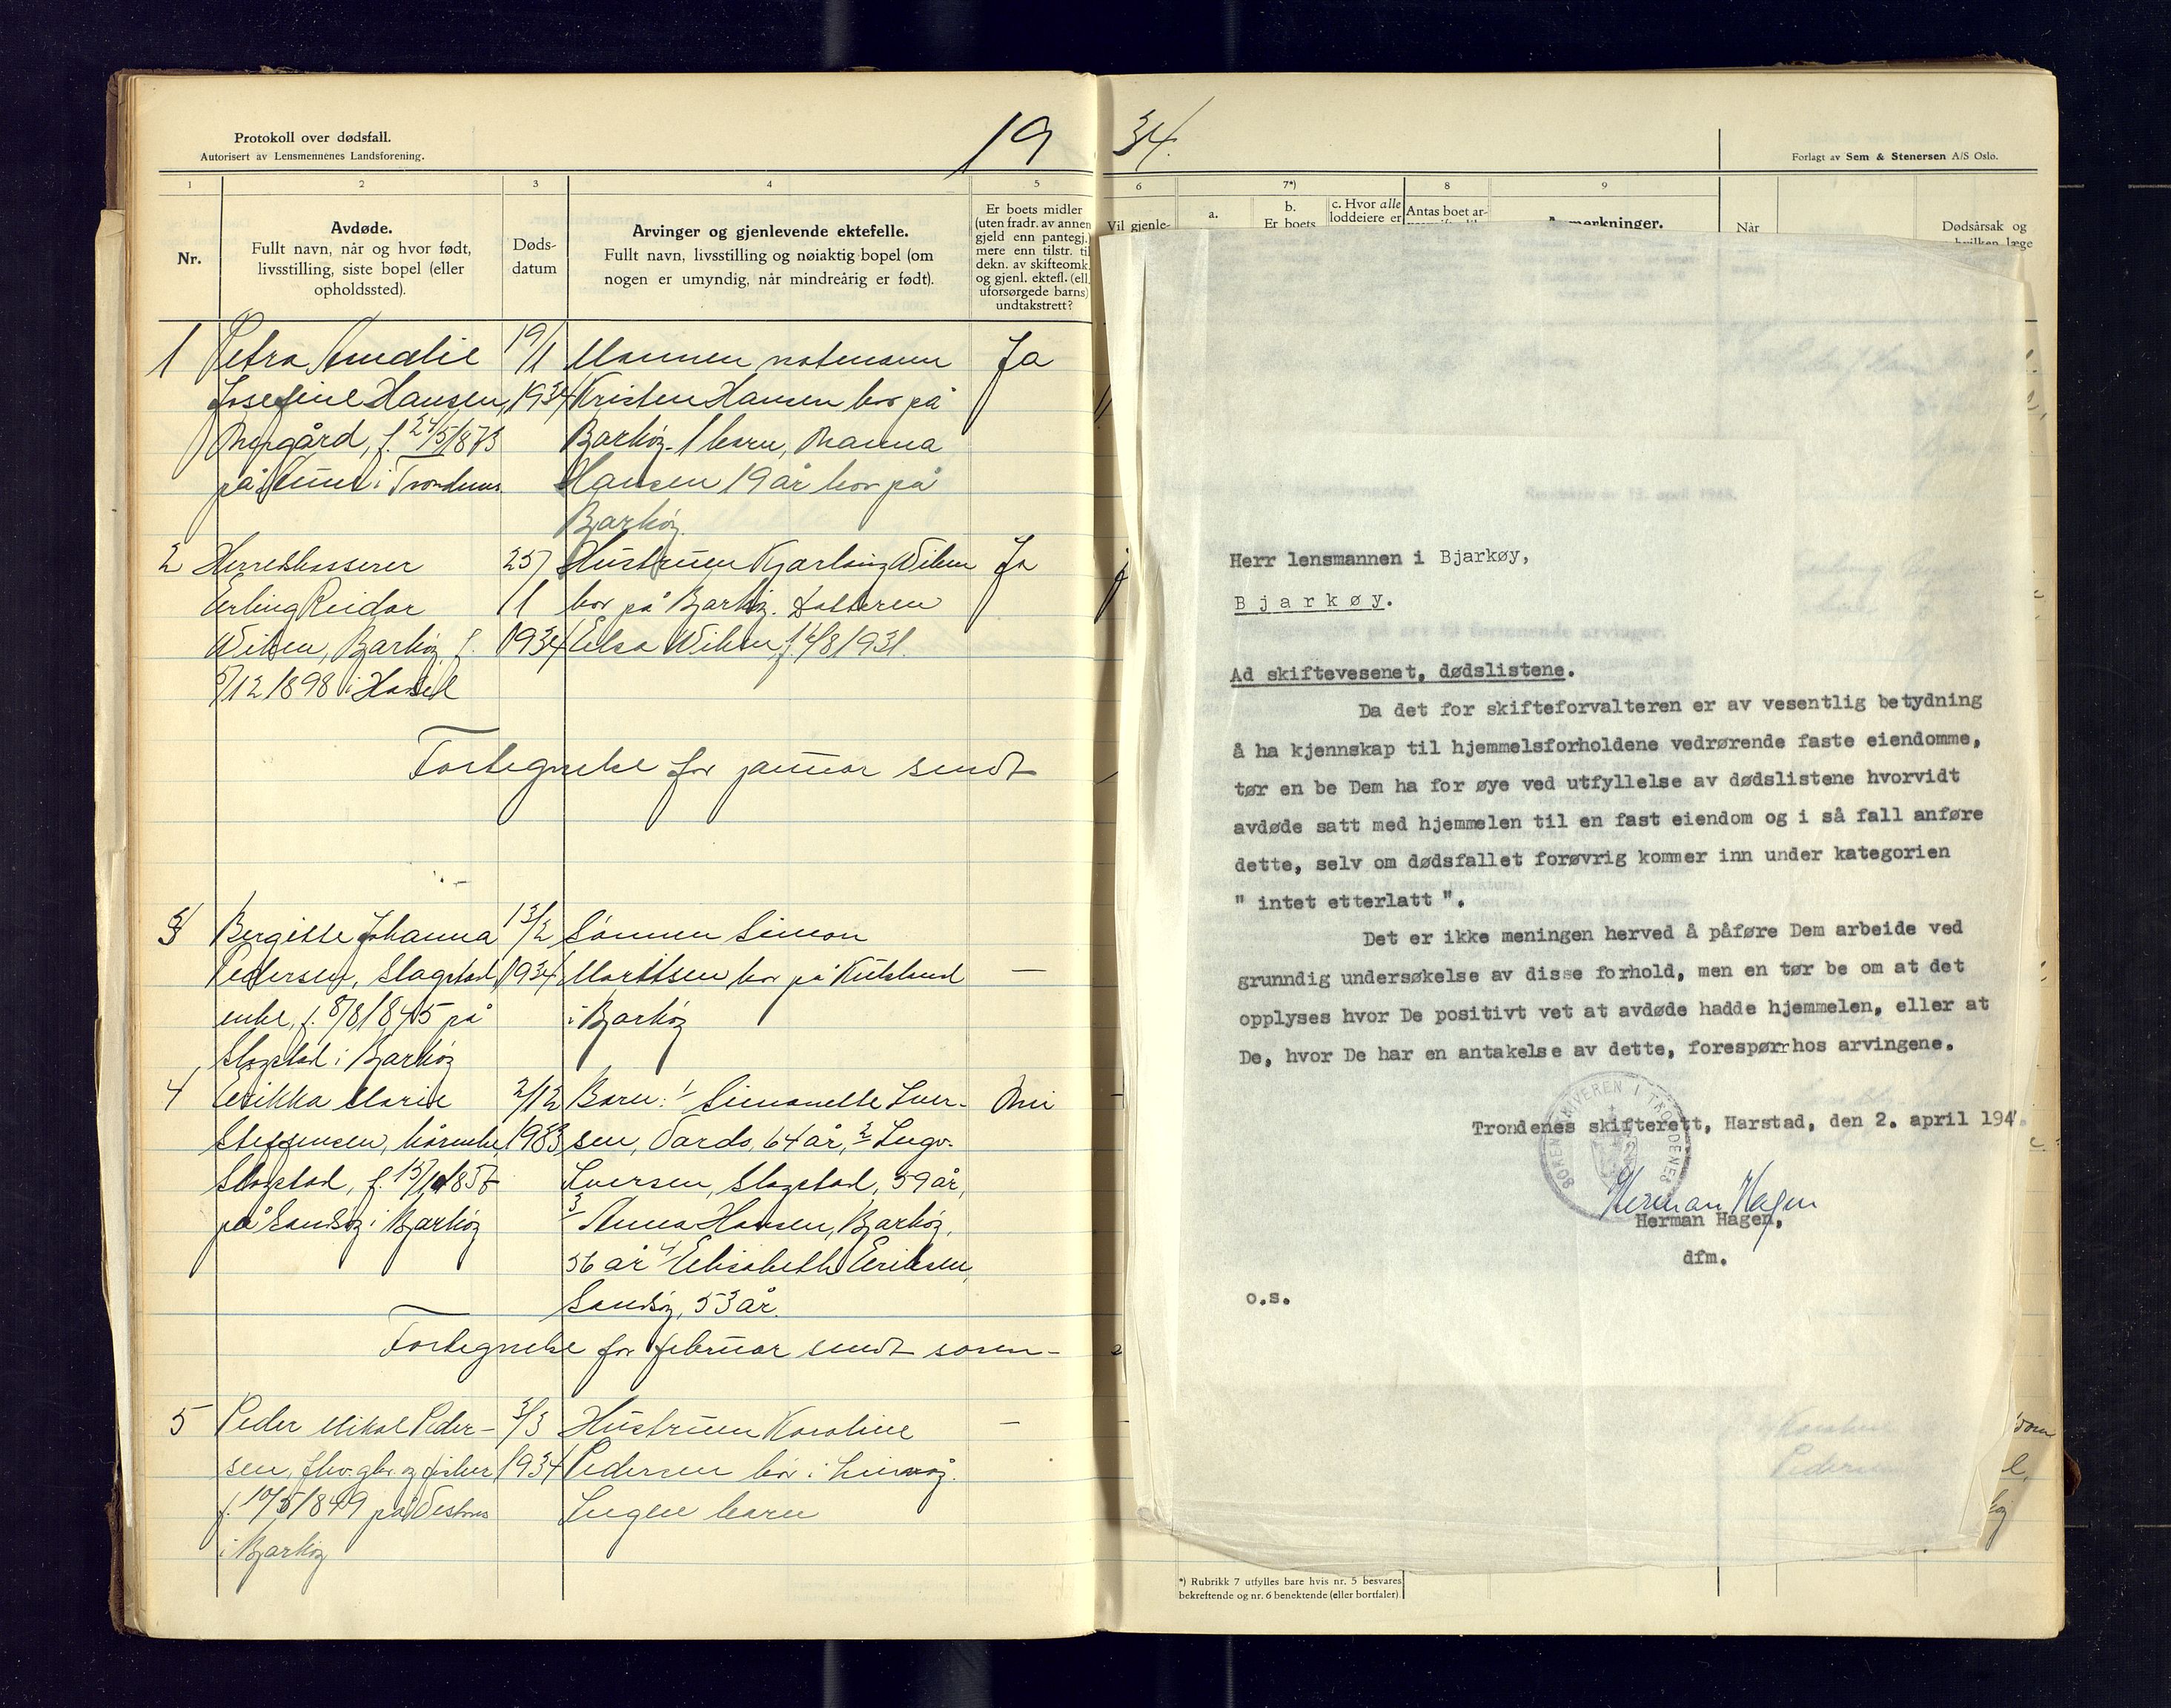 Protokoll over dødsfall.
Autorisert av Lensmennenes Landsforening.
19
1
2
3
4
5
Nr.
Avdøde.
Fullt navn, når og hvor født,
livsstilling, siste bopel (eller
opholdssted).
Døds-
datum
Arvinger og gjenlevende ektefelle.
Fullt navn, livsstilling og nøiaktig bopel (om
nogen er umyndig, når mindreårig er født).
Er boets midler
(uten fradr. av annen
gjeld enn pantegj.)
mere enn tilstr. til
dekn. av skifteomk.
og gjenl. ektefl. (ell.
uforsørgede barns)
undtakstrett?
1 Petra Amalie 19/1 Mannen notemann Ja
Josefine Hansen, 1934 Kristen Hansen bor på
f. 24/5/1873 Barkøy. 1 barn, Nanna
på i Trondenes Hansen 19 år bor på
Barkøy
2 Herredskasserer 25/ Hustruen Wilsen Ja
Erling Reidar 1 bor på Barkøy. Datteren
Barkøy f. 1934 Elsa 1931.
5/12 1898 i Hadsel
Fortegnelse for januar sendt
3 Bergitte Johanna 13/2 Sønnen Simon
Pedersen, Slagstad 1934 bor på —
enke, f. 8/8/1845 på i Barkøy
Slagstad i Barkøy
4 Erikka Marie 2/12 Barn: 1/ Simonette Iver- Nei
Steffensen, kårenke, 1933 sen, Vardø, 64 år, 2/ Ingv.
Slagstad, f. Iversen, Slagstad, 59 år,
på Sandsøy i Barkøy 3/ Anna Hansen, Barkøy,
56 år 4/ Elisabeth Eriksen,
Sandsøy, 53 år.
Fortegnelse for februar sendt soren-
5 Peder Mikal Peder- 3/3 Hustruen Karoline —
sen, fhv. gbr. og fisker 1934 Pedersen bor i
f. 10/5/1849 på Ingen barn
i Barkøy
34.
Forlagt av Sem & Stenersen A/S Oslo.
6
7*)
8
9
Vil gjenle-
a.
b.
Er boets
c. Hvor alle
loddeiere er
Antas boet ar-
Anmerkninger.
Når
Dødsårsak og
hvilken læge
Herr lensmannen i Bjarkøy,
Bjarkøy.
Ad skiftevesenet, dødslistene.
Da det for skifteforvalteren er av vesentlig betydning
å ha kjennskap til hjemmelsforholdene vedrørende faste eiendomme,
tør en be Dem ha for øye ved utfyllelse av dødslistene hvorvidt
avdøde satt med hjemmelen til en fast eiendom og i så fall anføre
dette, selv om dødsfallet forøvrig kommer inn under kategorien
" intet etterlatt ".
Det er ikke meningen herved å påføre Dem arbeide ved
grunndig undersøkelse av disse forhold, men en tør be om at det
opplyses hvor De positivt vet at avdøde hadde hjemmelen, eller at
De, hvor De har en antakelse av dette, forespørrhos arvingene.
Trondenes skifterett, Harstad, den 2. april 194
SORENSKRIVEREN I TRONDENES
Herman Hagen
Herman Hagen,
dfm.
o.s.
Karoline
Pedersen
*) Rubrikk 7 utfylles bare hvis nr. 5 besvares
bekreftende og nr. 6 benektende (eller bortfaler).